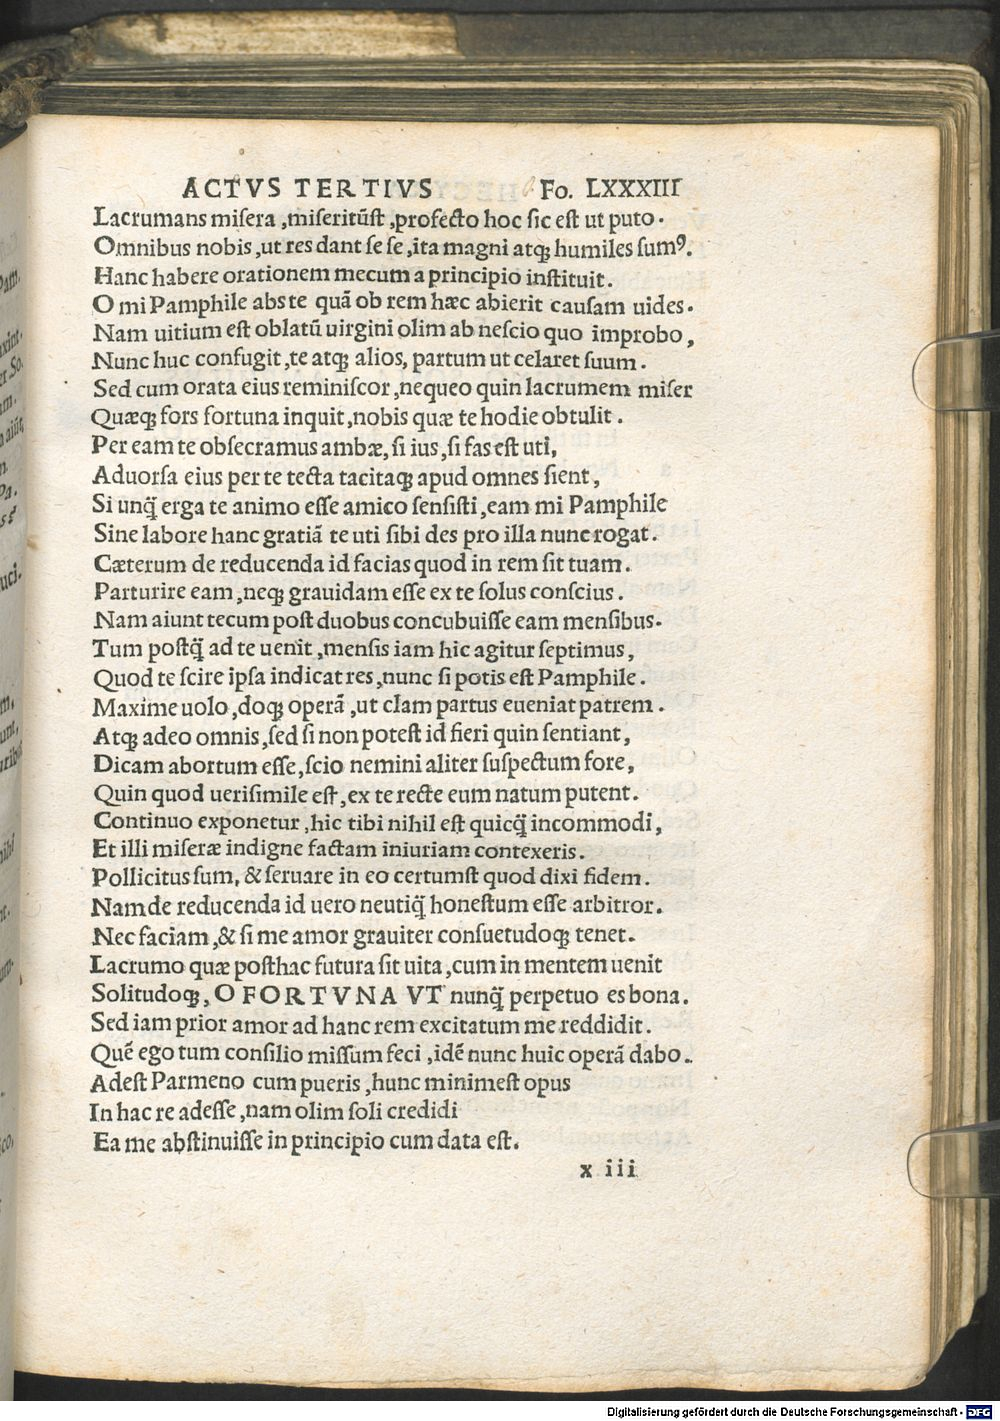 ACTVS TERTIVS Fo. LXXXIII
Lacrumans miſera ,miſeritūſt ,profecto hoc ſic eſt ut puto.
Omnibus nobis ,ut res dant ſe ſe ,ita magni atqꝫ humiles ſumꝰ.
Hanc habere orationem mecum a principio inſtituit.
O mi Pamphile abs te quā ob rem hæc abierit cauſam uides.
Nam uitium eſt oblatū uirgini olim ab neſcio quo improbo,
Nunc huc confugit ,te atqꝫ alios, partum ut celaret ſuum.
Sed cum orata eius reminiſcor ,nequeo quin lacrumem miſer
Quæqꝫ fors fortuna inquit ,nobis quæ te hodie obtulit.
Per eam te obſecramus ambæ, ſi ius ,ſi fas eſt uti,
Aduorſa eius per te tecta tacitaqꝫ apud omnes ſient,
Si unq̃ erga te animo eſſe amico ſenſiſti ,eam mi Pamphile
Sine labore hanc gratiā te uti ſibi des pro illa nunc rogat.
Cæterum de reducenda id facias quod in rem ſit tuam.
Parturire eam ,neqꝫ grauidam eſſe ex te ſolus conſcius.
Nam aiunt tecum poſt duobus concubuiſſe eam menſibus.
Tum poſtq̃ ad te uenit ,menſis iam hic agitur ſeptimus,
Quod te ſcire ipſa indicat res ,nunc ſi potis eſt Pamphile.
Maxime uolo ,doqꝫ operā ,ut clam partus eueniat patrem.
Atqꝫ adeo omnis ,ſed ſi non poteſt id fieri quin ſentiant,
Dicam abortum eſſe, ſcio nemini aliter ſuſpectum fore,
Quin quod ueriſimile eſt ,ex te recte eum natum putent.
Continuo exponetur ,hic tibi nihil eſt quicq̃ incommodi,
Et illi miſeræ indigne factam iniuriam contexeris.
Pollicitus ſum, & ſeruare in eo certumſt quod dixi fidem.
Nam de reducenda id uero neutiq̃ honeſtum eſſe arbitror.
Nec faciam ,& ſi me amor grauiter conſuetudoqꝫ tenet.
Lacrumo quæ poſthac futura ſit uita ,cum in mentem uenit
Solitudoqꝫ, O FORTVNA VT nunq̃ perpetuo es bona.
Sed iam prior amor ad hanc rem excitatum me reddidit.
Quē ego tum conſilio miſſum feci ,idē nunc huic operā dabo.
Adeſt Parmeno cum pueris ,hunc minimeſt opus
In hac re adeſſe ,nam olim ſoli credidi
Ea me abſtinuiſſe in principio cum data eſt.
x iii
Digitalisierung gefördert durch die Deutsche Forschungsgemeinschaft - DFG